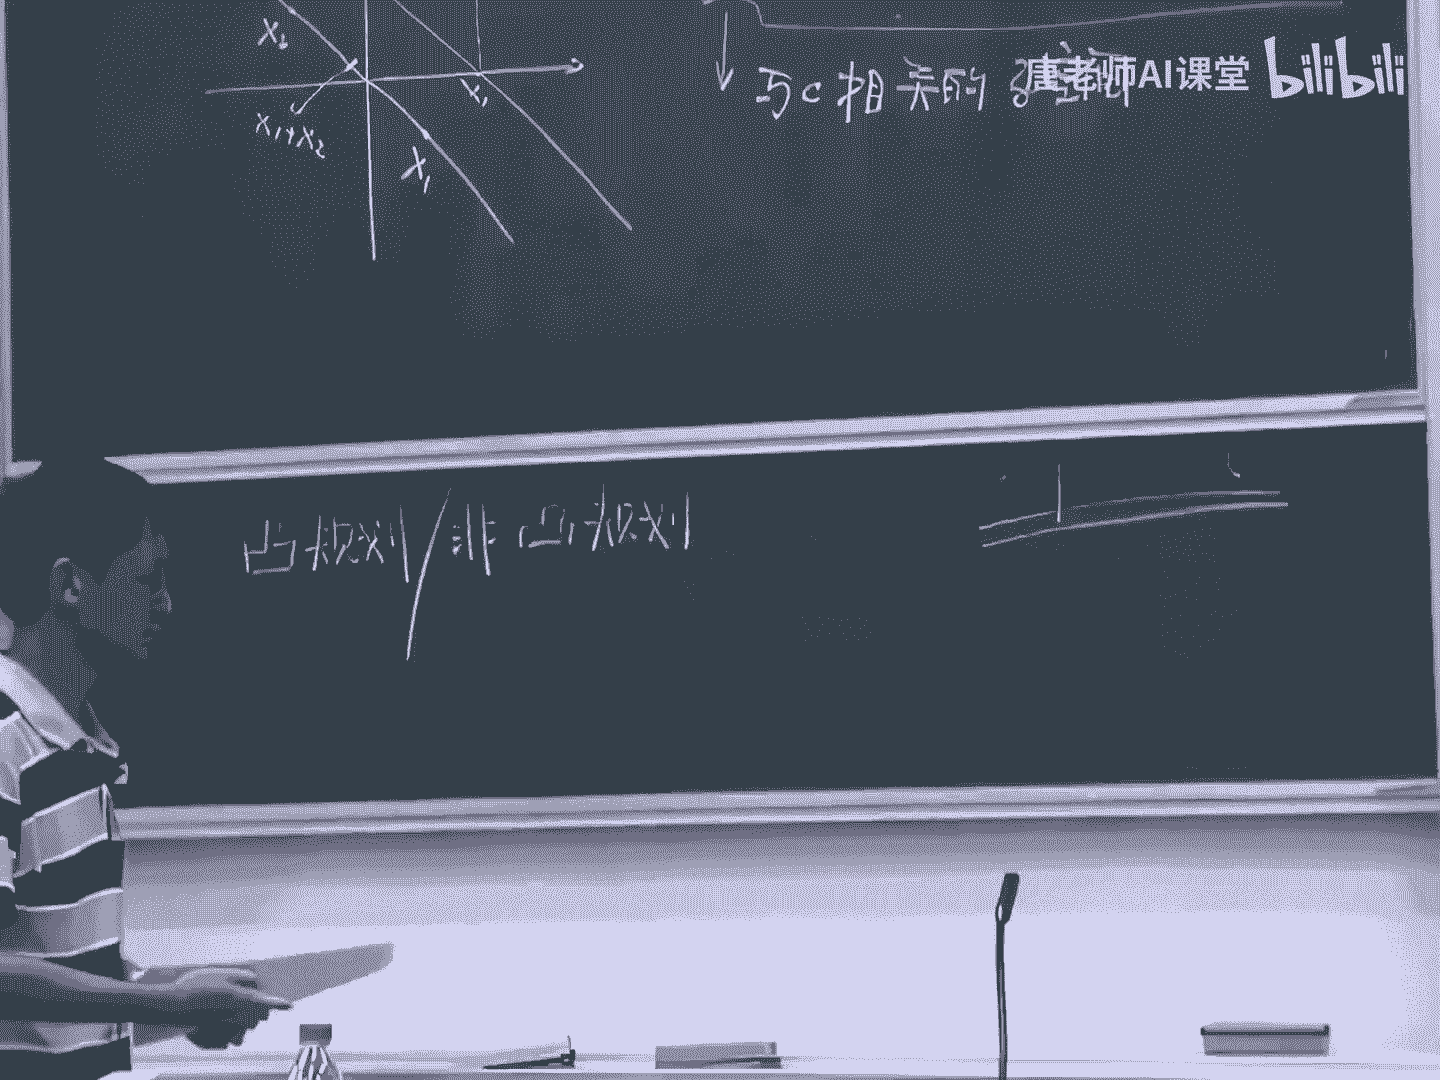 X₂
X₁+X₂
X₁
X₁
与C相关的子空间
唐老师AI课堂 bilibili
凸规划/非凸规划